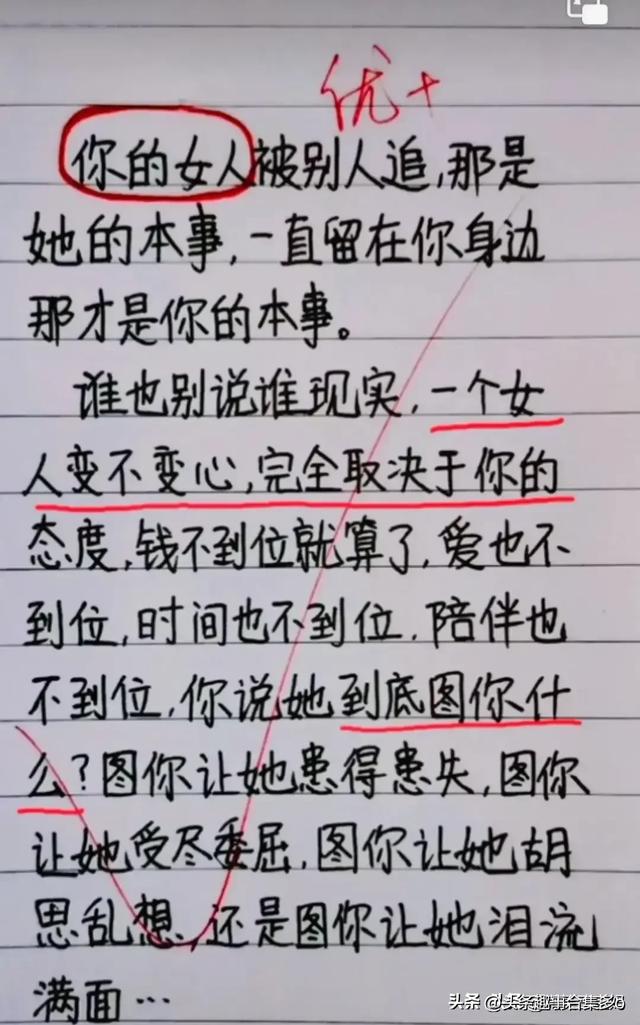 优+
你的女人被别人追,那是
她的本事,一直留在你身边
那才是你的本事。
谁也别说谁现实,一个女
人变不变心,完全取决于你的
态度,钱不到位就算了,爱也不
到位,时间也不到位,陪伴也
不到位,你说她到底图你什
么?图你让她患得患失,图你
让她受尽委屈,图你让她胡
思乱想,还是图你让她泪流
满面…
头条 @头条趣事合集多